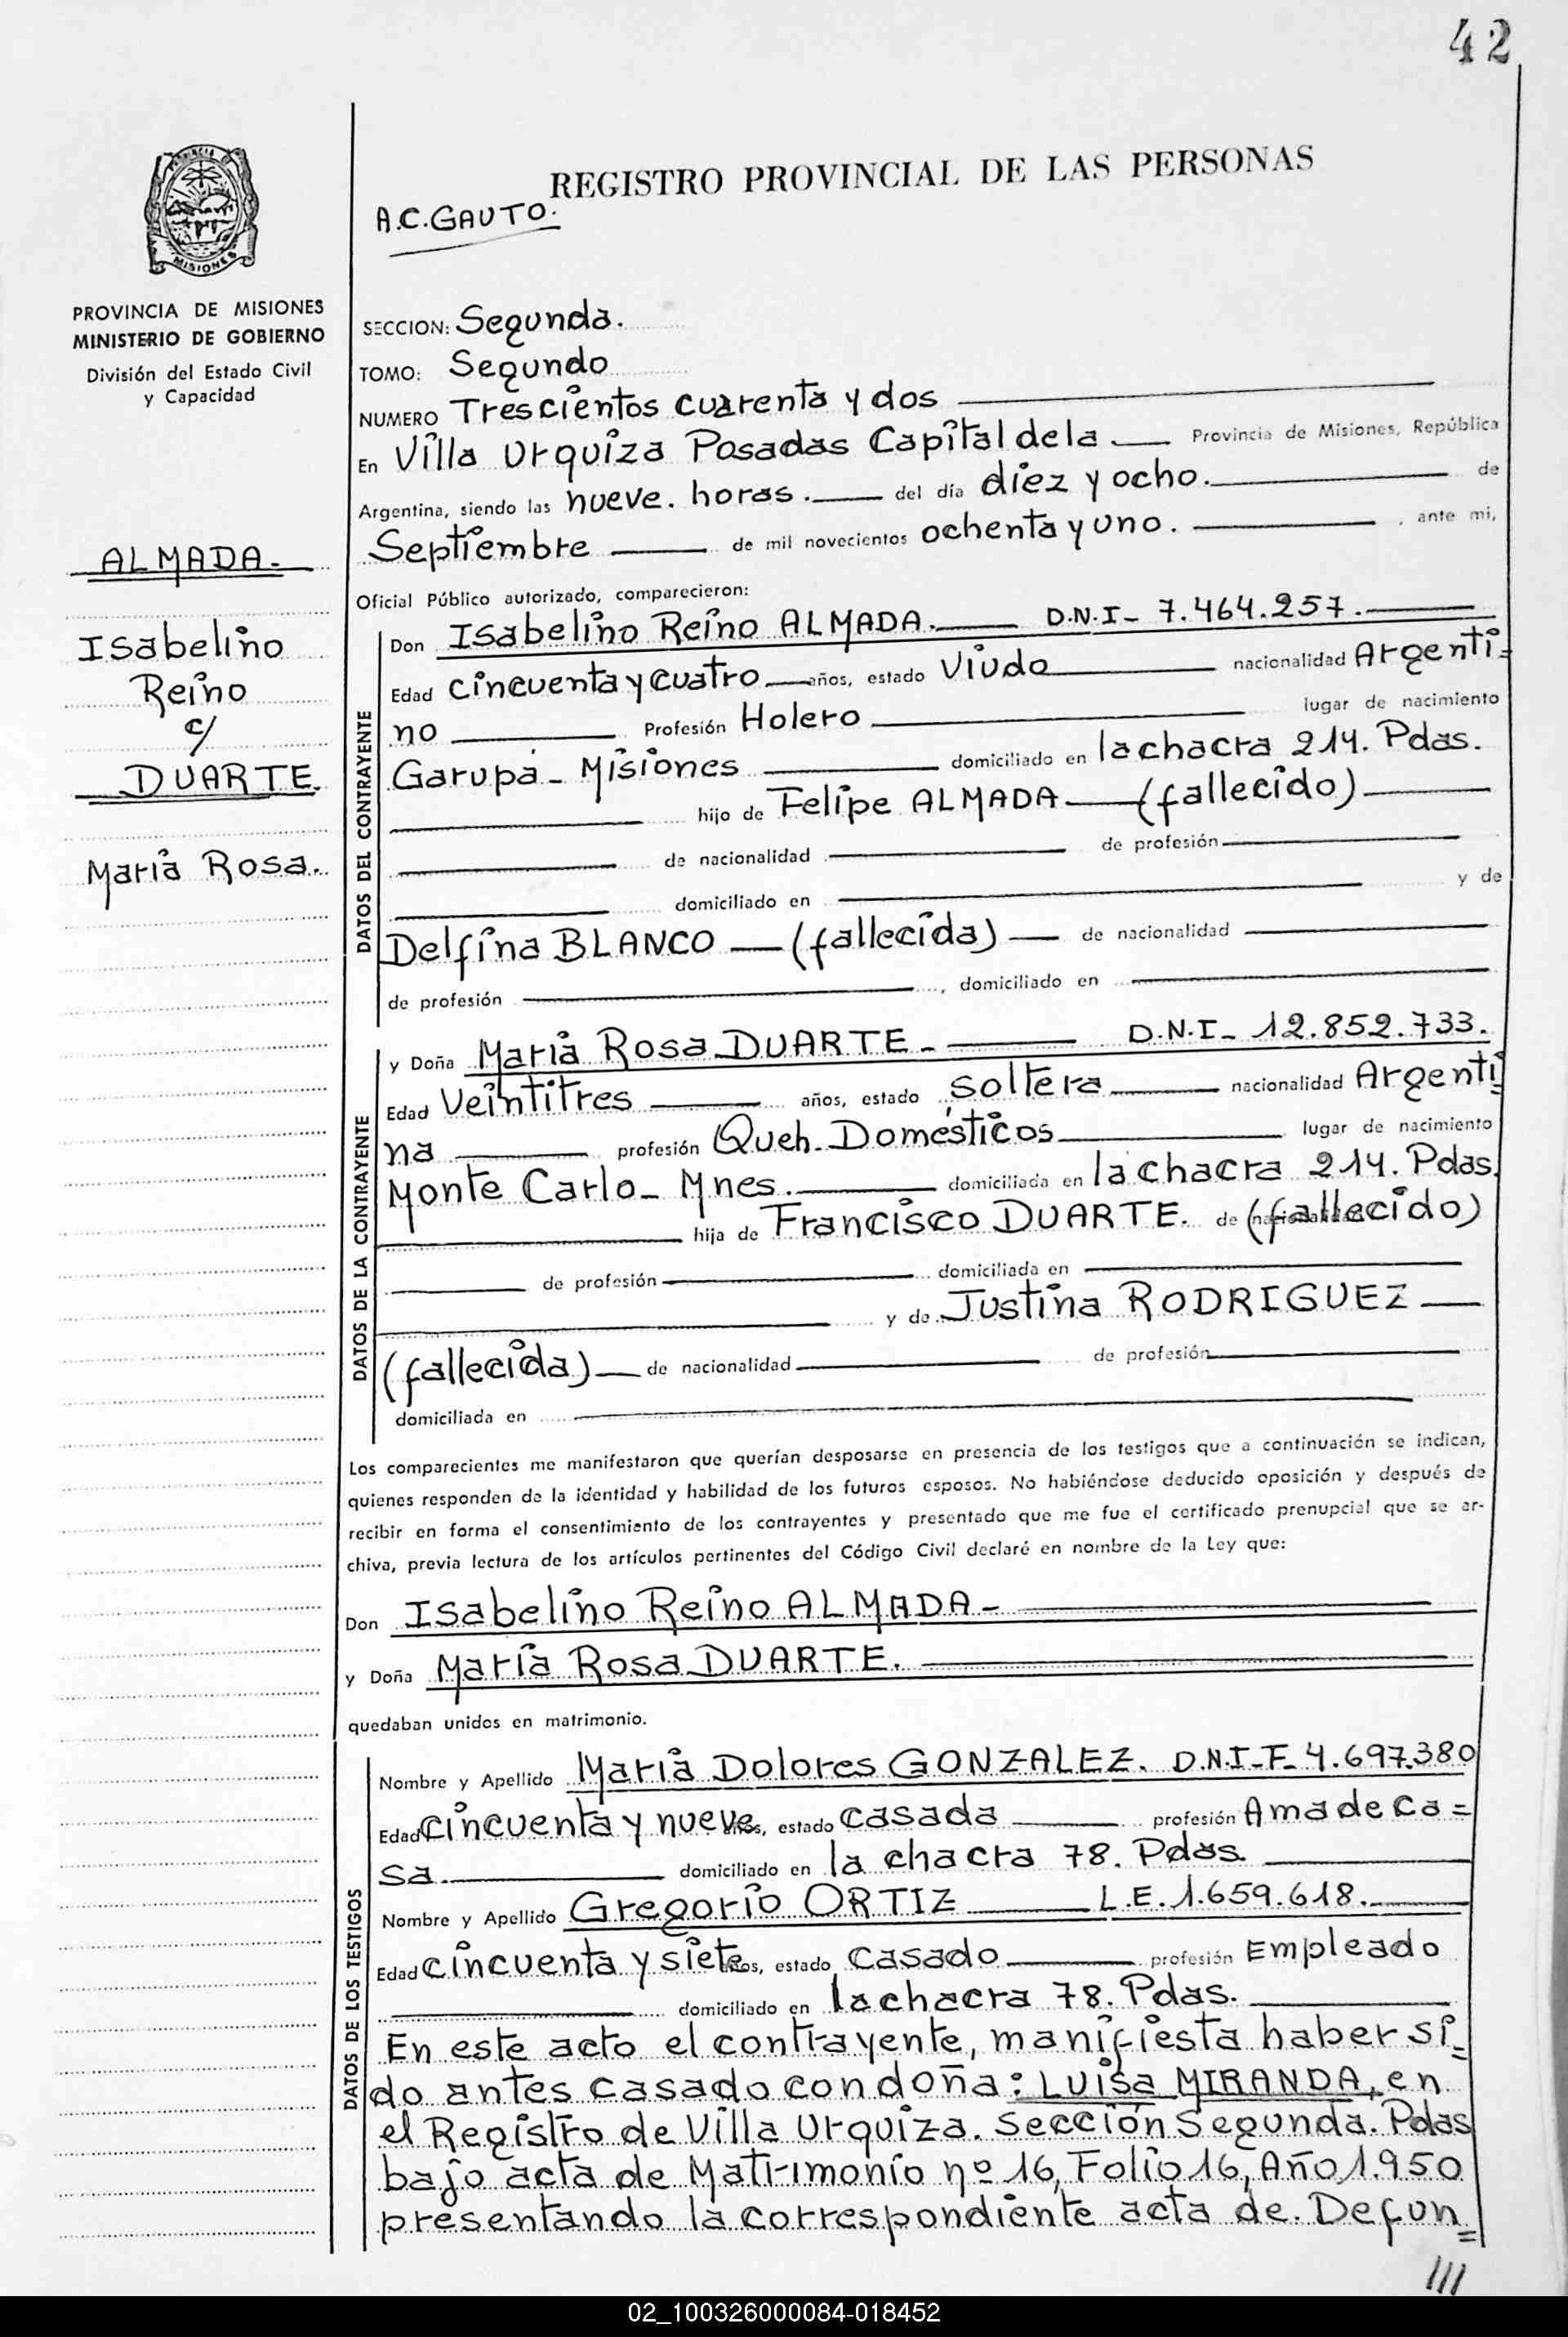 42
PROVINCIA
MISIONES
PROVINCIA DE MISIONES
MINISTERIO DE GOBIERNO
División del Estado Civil
y Capacidad
ALMADA.
Isabelino
Reino
c/
DUARTE.
María Rosa.
REGISTRO PROVINCIAL DE LAS PERSONAS
A.C.GAUTO.
SECCION: Segunda.
TOMO: Segundo
NUMERO Trescientos cuarenta y dos
En Villa Urquiza Posadas Capital de la Provincia de Misiones, República
Argentina, siendo las nueve. horas. del día diez y ocho. de
Septiembre de mil novecientos ochenta y uno. , ante mi,
Oficial Público autorizado, comparecieron:
DATOS DEL CONTRAYENTE
Don Isabelino Reino ALMADA. D.N.I- 7.464.257.
Edad cincuenta y cuatro años, estado Viudo nacionalidad Argenti=
no Profesión Holero lugar de nacimiento
Garupá - Misiones domiciliado en la chacra 214. Pdas.
hijo de Felipe ALMADA (fallecido)
de nacionalidad de profesión
domiciliado en y de
Delfina BLANCO (fallecida) de nacionalidad
de profesión , domiciliado en
DATOS DE LA CONTRAYENTE
y Doña María Rosa DUARTE - D.N.I- 12.852.733.
Edad Veintitres años, estado soltera nacionalidad Argenti
na profesión Queh. Domésticos lugar de nacimiento
Monte Carlo - Mnes. domiciliada en la chacra 214. Pdas.
hija de Francisco DUARTE. de nacionalidad (fallecido)
de profesión domiciliada en
y de Justina RODRIGUEZ
(fallecida) de nacionalidad de profesión
domiciliada en
Los comparecientes me manifestaron que querían desposarse en presencia de los testigos que a continuación se indican,
quienes responden de la identidad y habilidad de los futuros esposos. No habiéndose deducido oposición y después de
recibir en forma el consentimiento de los contrayentes y presentado que me fue el certificado prenupcial que se ar-
chiva, previa lectura de los artículos pertinentes del Código Civil declaré en nombre de la Ley que:
Don Isabelino Reino ALMADA -
y Doña María Rosa DUARTE.
quedaban unidos en matrimonio.
DATOS DE LOS TESTIGOS
Nombre y Apellido María Dolores GONZALEZ. D.N.I-F- 4.697.380
Edad cincuenta y nueve años, estado casada profesión Ama de Ca=
sa. domiciliado en la chacra 78. Pdas.
Nombre y Apellido Gregorio ORTIZ L.E. 1.659.618.
Edad cincuenta y siete años, estado casado profesión Empleado
domiciliado en la chacra 78. Pdas.
En este acto el contrayente, manifiesta haber si=
do antes casado con doña: LUISA MIRANDA, en
el Registro de Villa Urquiza. Sección Segunda. Pdas
bajo acta de Matrimonio nº 16, Folio 16, Año 1.950
presentando la correspondiente acta de. Defun=
///
02_100326000084-018452